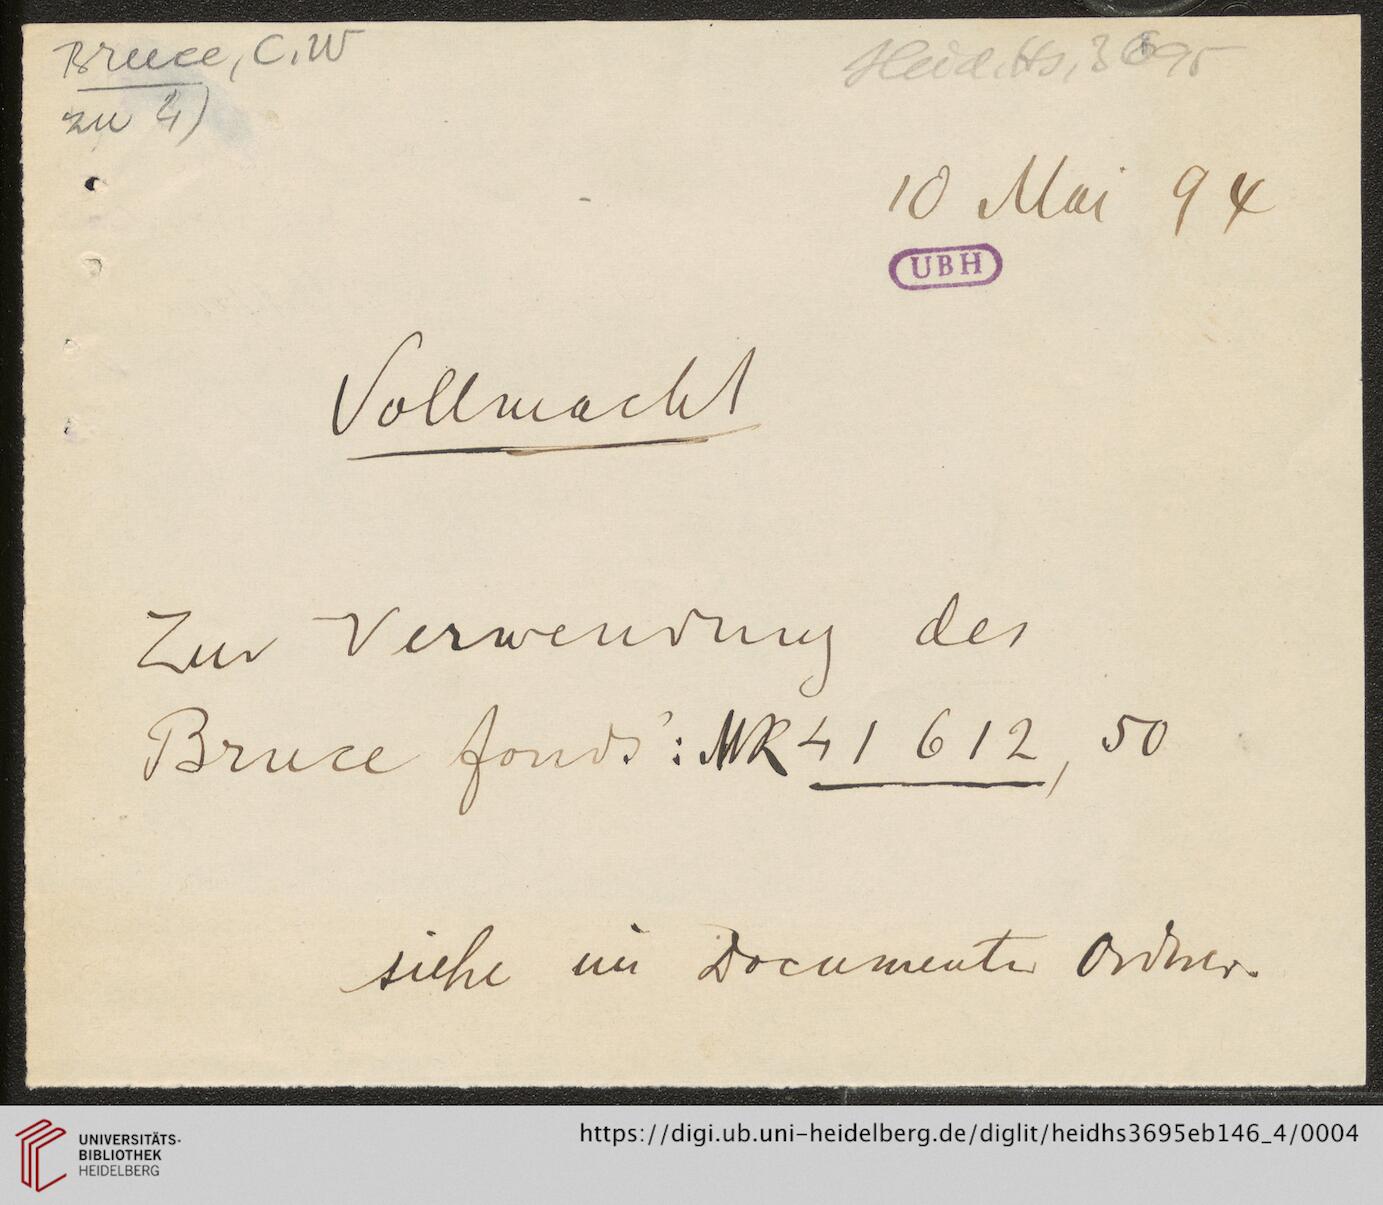 Bruce, C.W
zu 4)
Heid. Hs. 3695
10 Mai 94
UBH
Vollmacht
Zur Verwendung des
Bruce fonds: MK 41 612, 50
siehe im Documenten Ordner.
UNIVERSITÄTS-
BIBLIOTHEK
HEIDELBERG
https://digi.ub.uni-heidelberg.de/diglit/heidhs3695eb146_4/0004